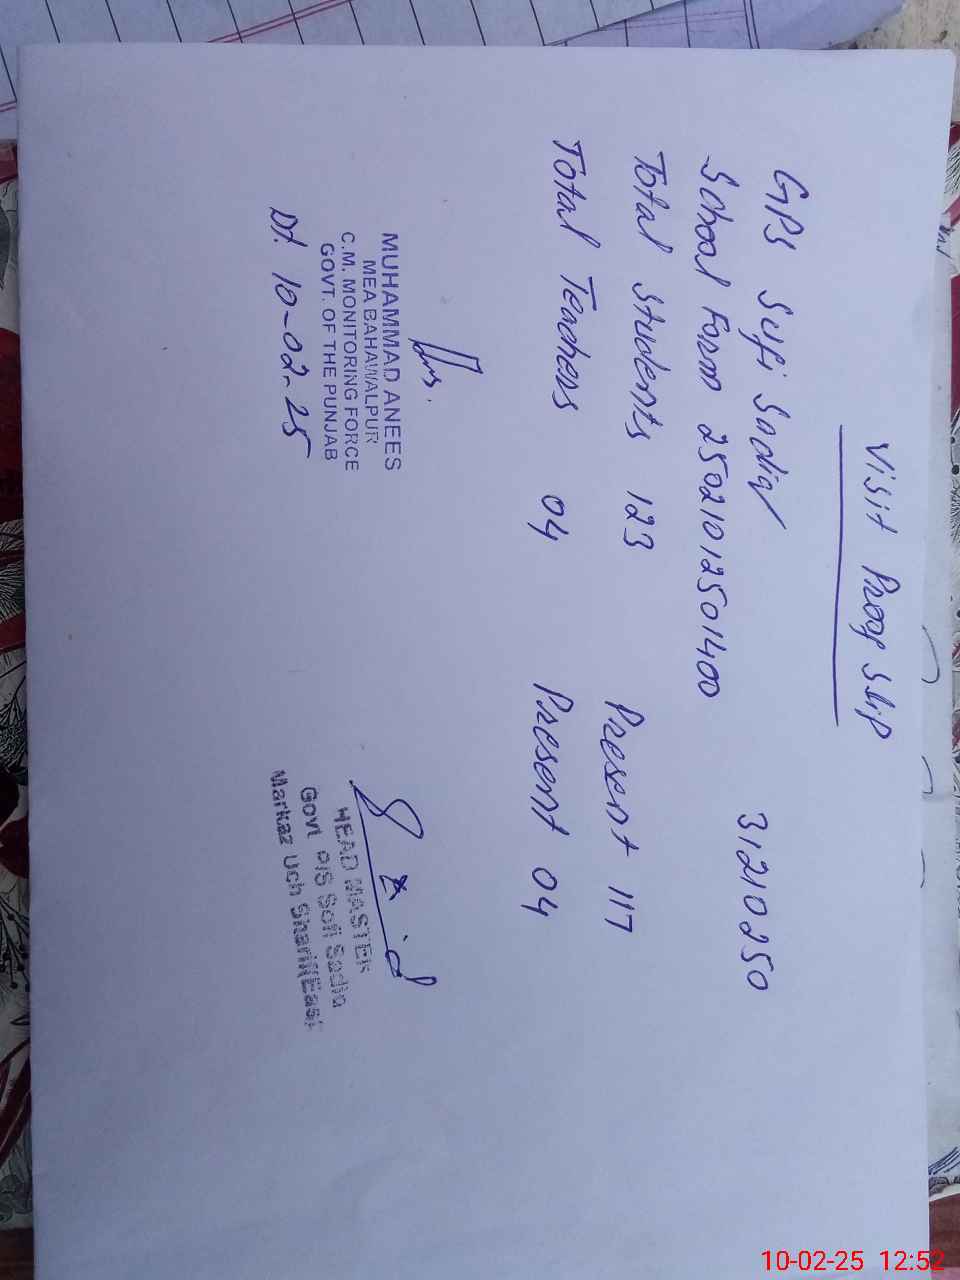 Visit Proof Slip
GPS Sufi Sadiq 31210250
School Form 25021012501400
Total Students 123 Present 117
Total Teachers 04 Present 04
MUHAMMAD ANEES
MEA BAHAWALPUR
C.M. MONITORING FORCE
GOVT. OF THE PUNJAB
Dt. 10-02-25
HEAD MASTER
Govt P/S Sofi Sadiq
Markaz Uch Sharif(East
10-02-25 12:52